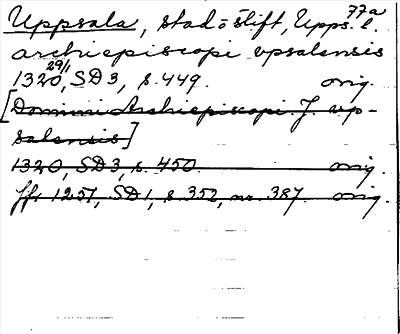 77a
Uppsala, stad o stift, Upps. l.
archiepiscopi vpsalensis
1320 29/1, SD 3, s. 449. orig.
[Domini Archiepiscopi J. vp-
salensis]
1320, SD 3, s. 450 orig.
ffr 1257, SD 1, s. 352, nr. 387. orig.